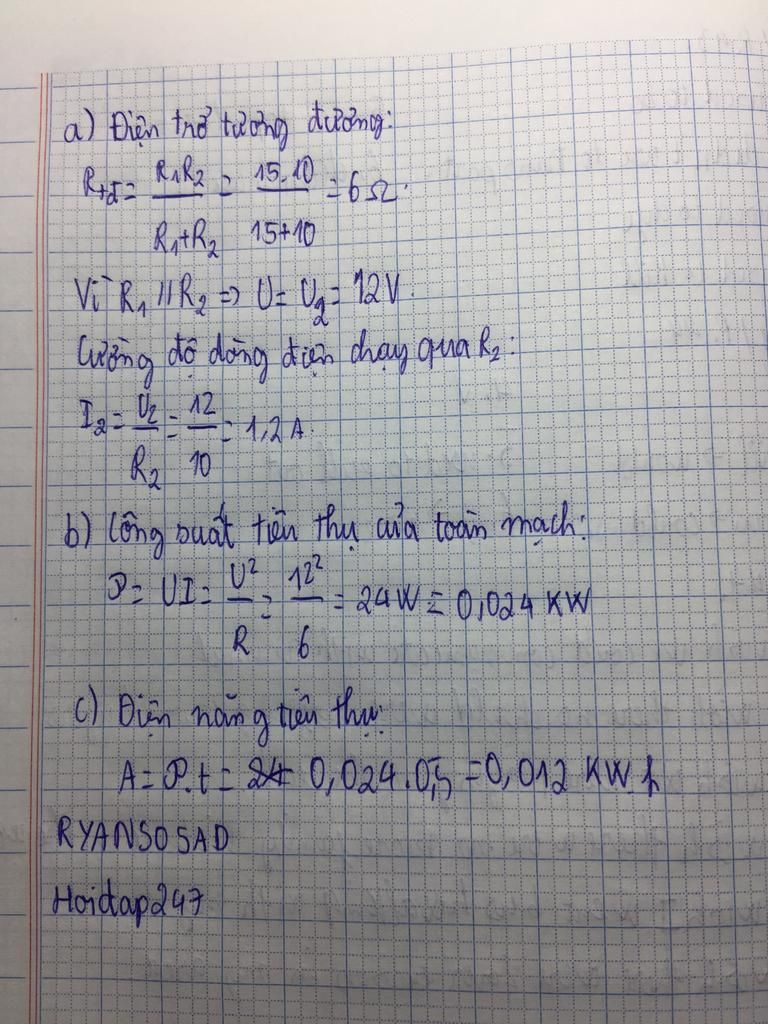 a) Điện trở tương đương:
Rtđ = R1R2 / R1+R2 = 15.10 / 15+10 = 6Ω.
Vì R1 // R2 => U = U2 = 12V.
Cường độ dòng điện chạy qua R2:
I2 = U2 / R2 = 12 / 10 = 1,2A.
b) Công suất tiêu thụ của toàn mạch:
P = UI = U² / R = 12² / 6 = 24W = 0,024 KW
c) Điện năng tiêu thụ:
A = P.t = 0,024.0,5 = 0,012 KW.h
RYANSOSAD
Hoidap247